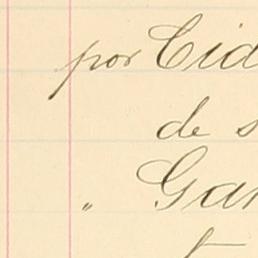 por Cid
de s
" Gar